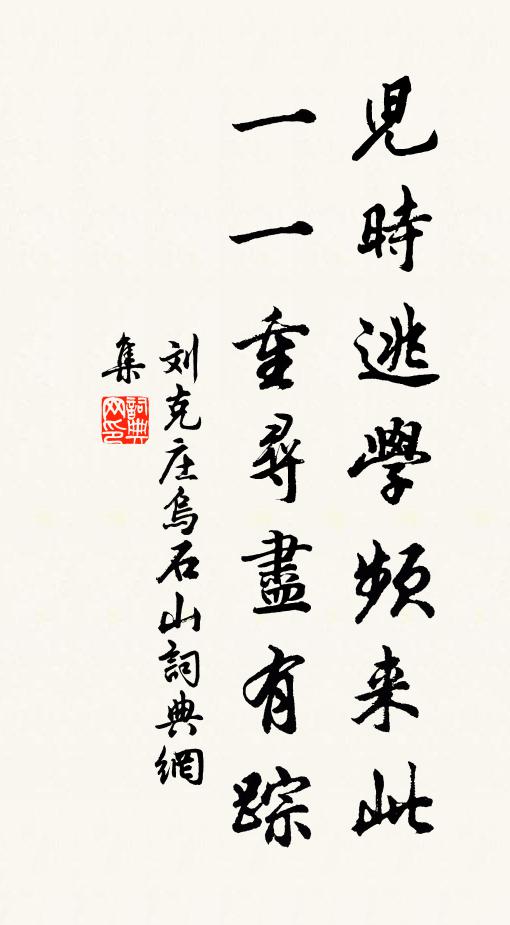 児時逃學頻来此
一一重尋盡有踪
刘克庄烏石山詞典網
集
詞典网印